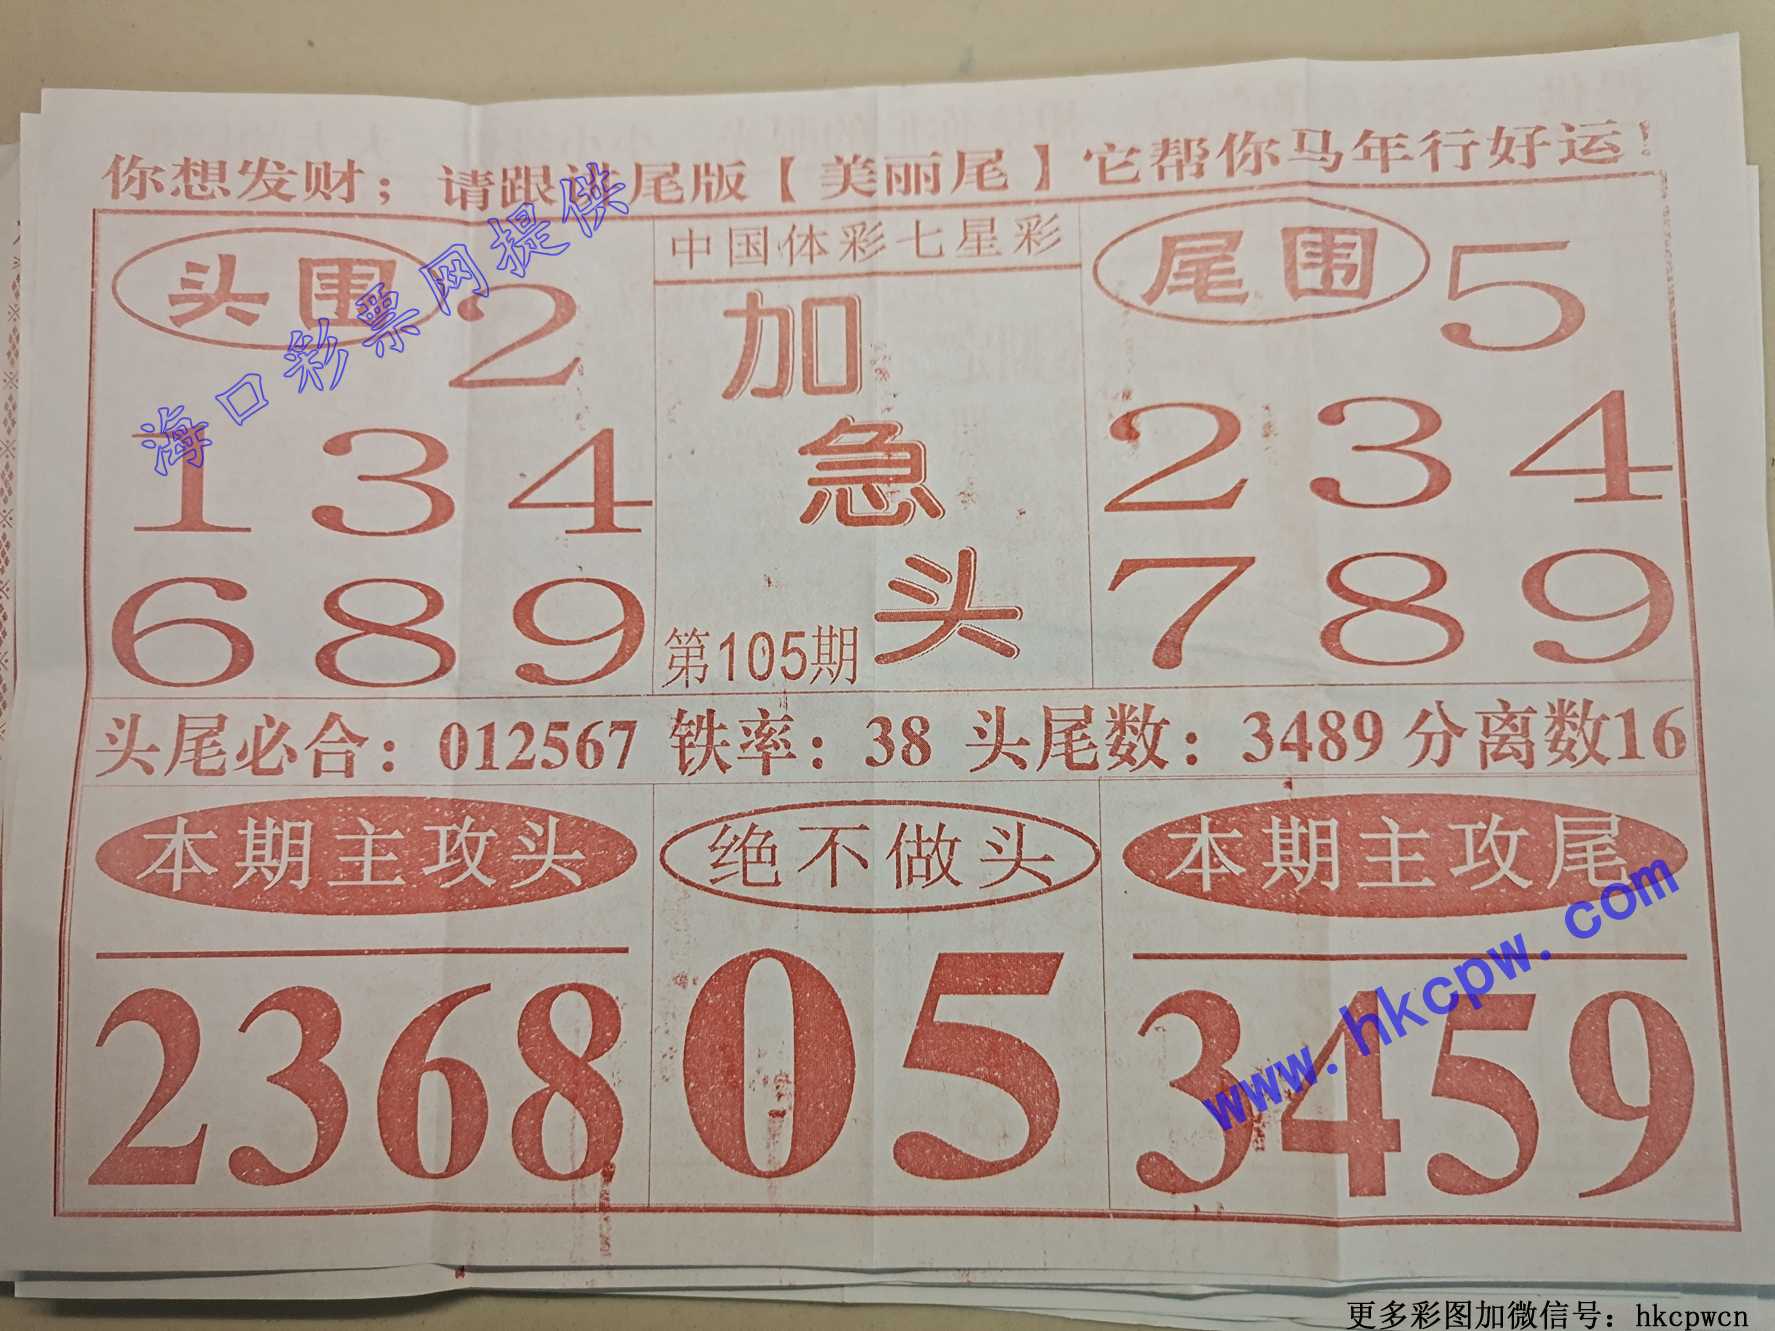 你想发财；请跟 尾版【美丽尾】它帮你马年行好运！
头围
2
1 3 4
6 8 9
中国体彩七星彩
加
急
头
第105期
尾围
5
2 3 4
7 8 9
头尾必合：012567 铁率：38 头尾数：3489 分离数16
本期主攻头
2368
绝不做头
05
本期主攻尾
3459
海口彩票网提供
www.hkcpw.com
更多彩图加微信号：hkcpwcn